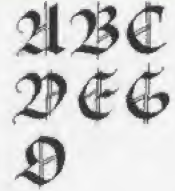 A B C
D E G
O